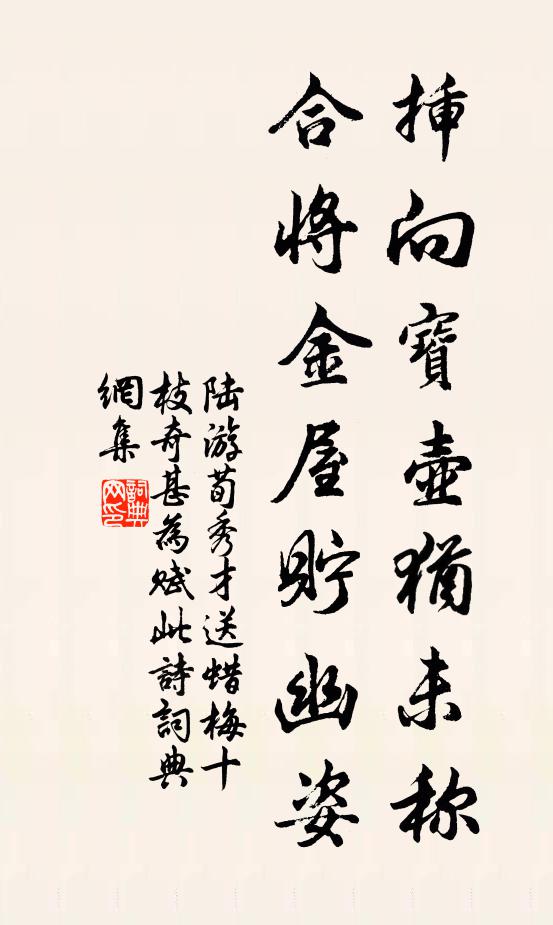 插向寶壺猶未称
合將金屋貯幽姿
陆游荀秀才送蜡梅十
枝奇甚為赋此詩詞典
網集
詞典
网印